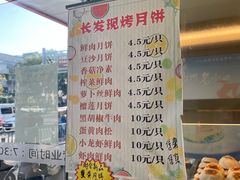 长发现烤月饼
鲜肉月饼 4.5元/只
豆沙月饼 4.5元/只
香菇净素 4.5元/只
榨菜鲜肉 4.5元/只
萝卜丝鲜肉 4.5元/只
榴莲月饼 4.5元/只
黑胡椒牛肉 10元/只
蛋黄肉松 10元/只
小龙虾鲜肉 10元/只
虾肉鲜肉 10元/只
业时间:7:30